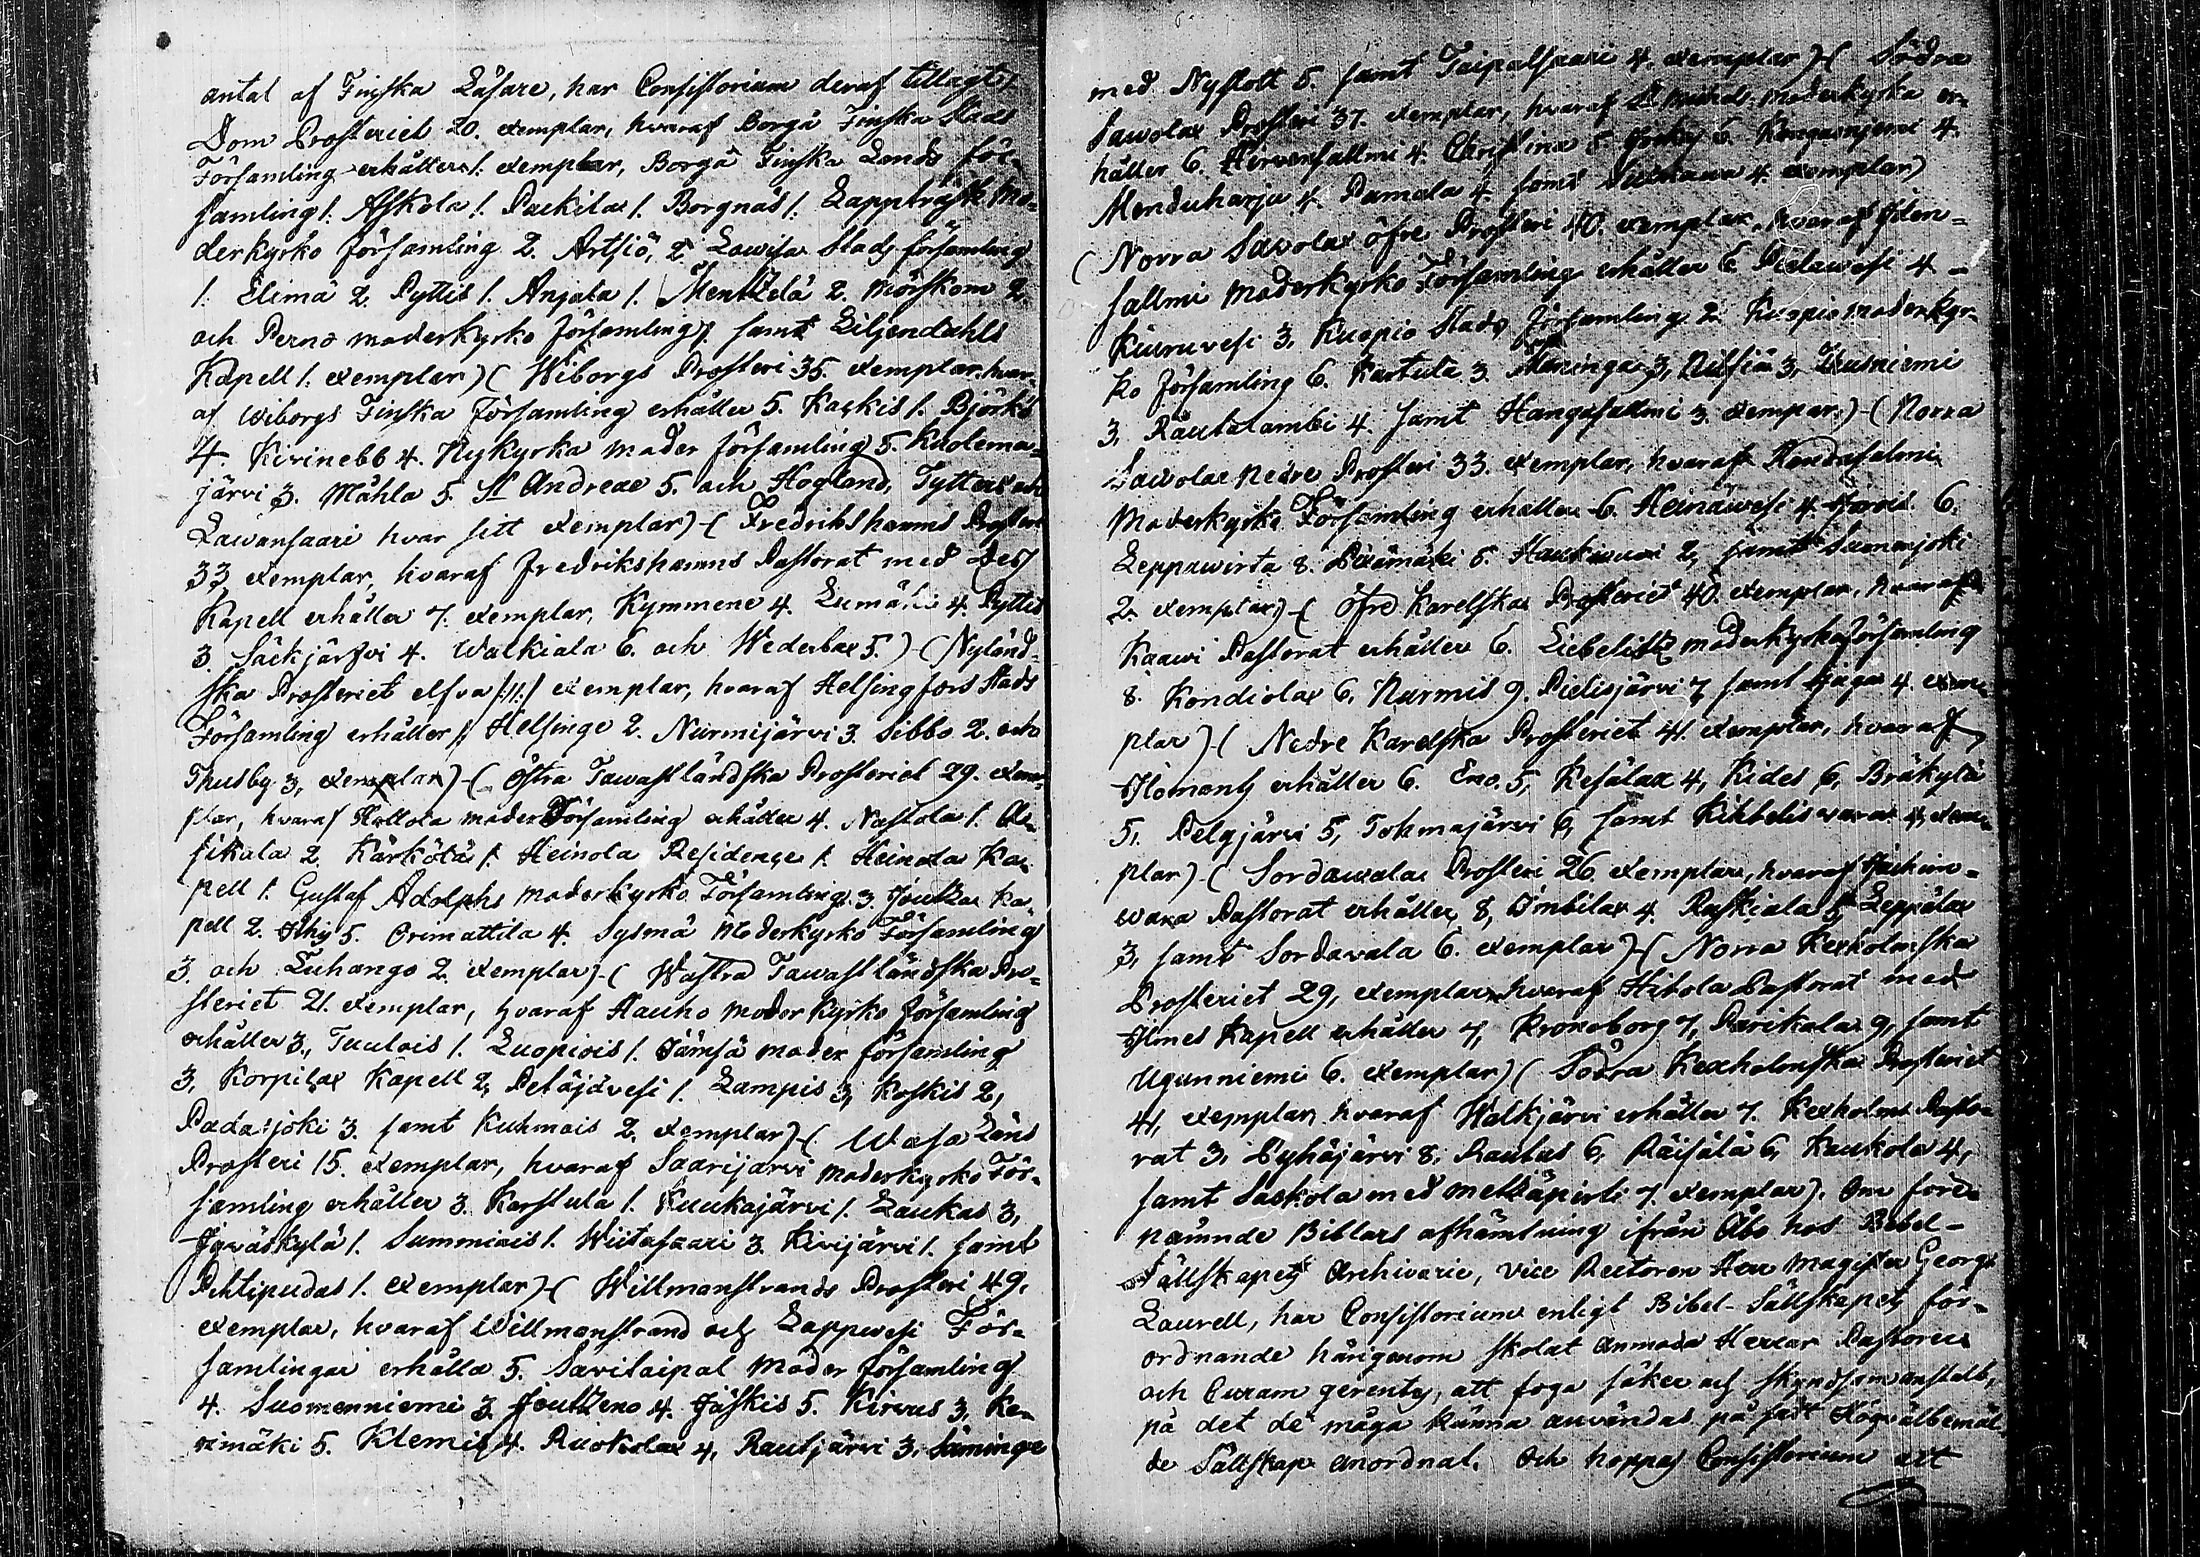 antal af Finska Läsare, har Consistorium deraf tillagt,
Dom Prosteriet 20. exemplar, hvaraf Borgå Finska Stads
Församling erhåller 1. exemplar, Borgå Finska Lands för-
samling 1. Askola 1. Puckila 1. Borgnäs 1. Lappträsk Mo-
derkyrko församling 2. Artsiö, 2. Lowisa Stads församling
1. Elimä 2. Pyttis 1. Anjala 1. Mentzelä 2. Mörskom 2.
och Perno moderkyrko församling 1. samt Liljendahls
Kapell 1. exemplar) ( Wiborgs Prosteri 35. exemplar, hvar-
af Wiborgs Finska församling erhåller 5. Kaskis 1. Björkö
4. Kivinebb 4. Nykyrka moder församling 5. Kuolema-
järvi 3. Mohla 5. St Andreae 5. och Hogland, Tytters och
Lawansaari hvar sitt exemplar) - ( Fredrikshamns Prosteri
33 exemplar, hvaraf Fredrikshamns Pastorat med dess
Kapell erhåller 7. exemplar, Kymmene 4. Lumäki 4. Pyttis
3. Säckjärfvi 4. Walkiala 6. och Wederlax 5.) - ( Nyländ-
ska Prosteriet elfva /:11:/ exemplar, hvaraf Helsingfors Stads
Församling erhåller 1. Helsinge 2. Nurmijärvi 3. Sibbo 2. och
Thusby 3, exemplar) - ( Östra Tawastländska Prosteriet 29. exem-
plar, hvaraf Hollola moder Församling erhåller 4. Nastola 1. As-
sikala 2. Kärkölä 1. Heinola Residence 1. Heinola Ka-
pell 1. Gustaf Adolphs moderkyrko Församling 3. Joutza Ka-
pell 2. Ithis 5. Orimattila 4. Sysmä Moderkyrko Församling
3. och Luhango 2. exemplar) - ( Wästra Tawastländska Pro-
steriet 21. exemplar, hvaraf Hauho moder kyrko församling
erhåller 3., Tuulois 1. Luopiois 1. Jämsä moder församling
3, Korpilax Kapell 2, Petäjävesi 1. Lampis 3, Koskis 2,
Padasjoki 3. samt Kuhmois 2. exemplar) - ( Wasa Läns
Prosteri 15. exemplar, hvaraf Saarijarvi moderkyrko För-
samling erhåller 3. Karstula 1. Kuukajärvi 1. Laukas 3,
Jyväskylä 1. Summiais 1. Wiitasaari 3. Kivijärvi 1. samt
Pihtipudas 1. exemplar) - ( Willmanstrands Prosteri 49.
exemplar, hvaraf Willmanstrand och Lappwesi För-
samlingar erhålla 5. Savitaipal Moder församling
4. Suomenniemi 3. Joutzeno 4. Jäskis 5. Kirvus 3. Ke-
rimäki 5. Klemis 4. Ruokolax 4, Rautjärvi 3, Säminge
med Nyslott 5. samt Taipalsaari 4. exemplar) - ( Södra
Sawolax Prosteri 37. exemplar, hvaraf St Michels moderkyrka er-
håller 6. Hirvensallmi 4. Christina 5. Jockas 6. Kangasnjemi 4.
Mendüharju 4. Pumala 4. samt 4. exemplar)
( Norra Sawolax öfre Prosteri 40. exemplar, hvaraf Iden-
sallmi moderkyrko Församling erhåller 6. Pielawesi 4 -
Kiuruvesi 3, Kuopio Stads församling 2. Kuopio moderkyr-
ko församling 6. Karttula 3. Maninga 3, Nilsiä 3, Tuusniemi
3, Rautalambi 4. samt Hangasallmi 3. exemplar.) - ( Norra
Sawolax nedre Prosteri 33. exemplar, hvaraf Randasalmi
Moderkyrko Församling erhåller 6. Heinäwesi 4. Jorois 6.
Leppäwirta 8. Pixämäki 5. Haukivuori 2, samt Suonenjoki
2. exemplar) - ( Öfre Karelska Prosteriet 40. exemplar, hvaraf
Kaawi Pastorat erhåller 6. Liebelitz moderkyrkoförsamling
8. Kondiolax 6, Nurmis 9. Pielisjärvi 7, samt Juga 4. exem-
plar) - ( Nedre Karelska Prosteriet 41. exemplar, hvaraf
Ilomants erhåller 6. Eno 5, Kesälax 4, Kides 6, Bräkylä
5, Pelgjärvi 5, Tohmajärvi 6, samt Kihtelisvaara 4, exem-
plar) - ( Sordawala Prosteri 26. exemplar, hvaraf Jaakim-
wara Pastorat erhåller 8, Imbilax 4. Ruskiala 5 Leppälax
3, samt Sordavala 6. exemplar) - ( Norra Kexholmska
Prosteriet 29, exemplar, hvaraf Hitola Pastorat med
Ilmes Kapell erhåller 7, Kronoborg 7, Parikala 9, samt
Ugunniemi 6. exemplar) ( Södra Kexholmska Prosteriet
41, exemplar, hvaraf Walkjärvi erhåller 7. Kexholms Pasto-
rat 3, Pyhäjärvi 8, Rautus 6, Räisälä 6, Kaukola 4,
samt Saskola med Metzäpirti 7. exemplar). Om före-
nämnde Biblars afhämtning ifrån Åbo hos Bibel-
Sällskapets Archivarie, vice Rectoren Herr Magister Georg
Laurell, har Consistorium enligt Bibel-Sällskapets för-
ordnande härigenom skolat anmoda Herrar Pastorer
och Curam gerentes, att foga säker och skyndsam anstalt,
på det de måga kunna användas på sätt Högvälbemäl-
de Sällskap anordnat. Och hoppas Consistorium att